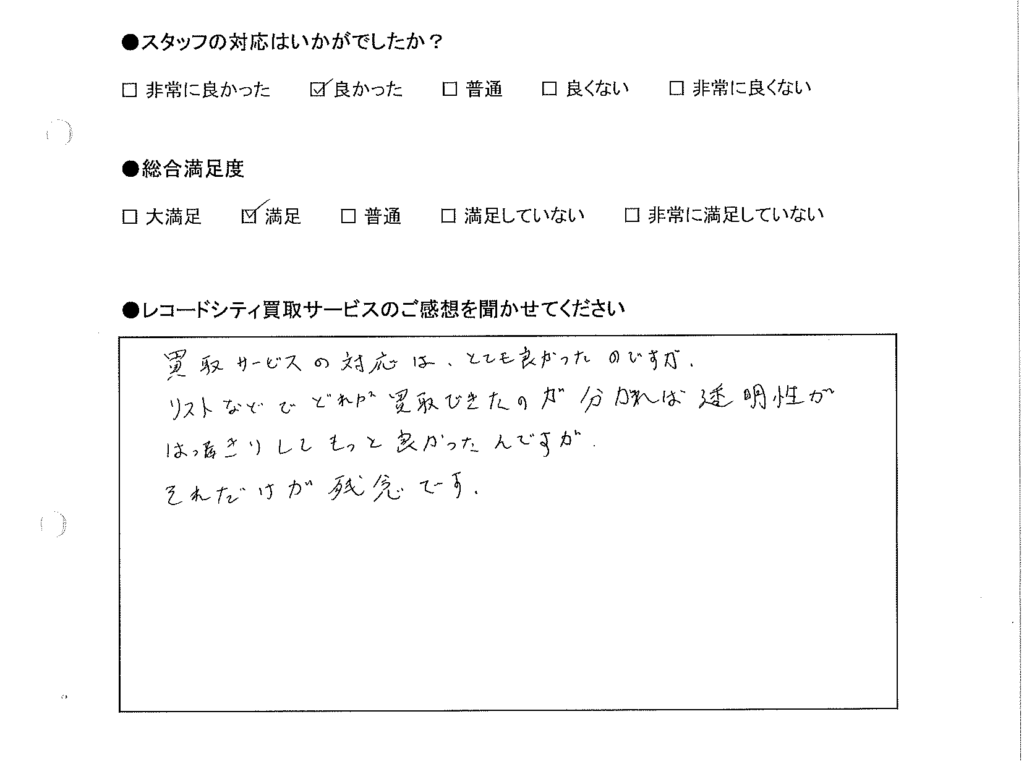 ●スタッフの対応はいかがでしたか？
□ 非常に良かった ☑ 良かった □ 普通 □ 良くない □ 非常に良くない
●総合満足度
□ 大満足 ☑ 満足 □ 普通 □ 満足していない □ 非常に満足していない
●レコードシティ買取サービスのご感想を聞かせてください
買取サービスの対応は、とても良かったのですが、
リストなどでどれが買取できたのが分かれば透明性が
はっきりしてもっと良かったんですが、
それだけが残念です。